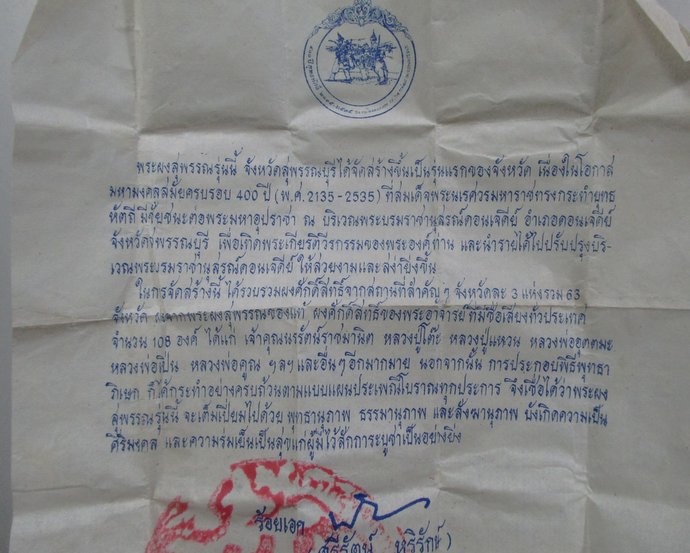 พระผงสุพรรณรุ่นนี้ จังหวัดสุพรรณบุรีได้จัดสร้างขึ้นเป็นรุ่นแรกของจังหวัด เนื่องในโอกาส
มหามงคลสมัยครบรอบ 400 ปี (พ.ศ. 2135-2535) ที่สมเด็จพระนเรศวรมหาราชทรงกระทำยุทธ
หัตถีมีชัยชนะต่อพระมหาอุปราชา ณ บริเวณพระบรมราชานุสรณ์ดอนเจดีย์ อำเภอดอนเจดีย์
จังหวัดสุพรรณบุรี เพื่อเทิดพระเกียรติวีรกรรมของพระองค์ท่าน และนำรายได้ไปปรับปรุงบริ-
เวณพระบรมราชานุสรณ์ดอนเจดีย์ ให้สวยงามและสง่ายิ่งขึ้น
ในการจัดสร้างนี้ ได้รวบรวมผงศักดิ์สิทธิ์จากสถานที่สำคัญๆ จังหวัดละ 3 แห่งรวม 63
จังหวัด ผงจากพระผงสุพรรณของแท้ ผงศักดิ์สิทธิ์ของพระอาจารย์ ที่มีชื่อเสียงทั่วประเทศ
จำนวน 108 องค์ ได้แก่ เจ้าคุณนรรัตน์ราชมานิต หลวงปู่โต๊ะ หลวงปู่แหวน หลวงพ่ออุตตมะ
หลวงพ่อเปิ่น หลวงพ่อคูณ ฯลฯและอื่นๆอีกมากมาย นอกจากนั้น การประกอบพิธีพุทธา
ภิเษก ก็ได้กระทำอย่างครบถ้วนตามแบบแผนประเพณีโบราณทุกประการ จึงเชื่อได้ว่าพระผง
สุพรรณรุ่นนี้ จะเต็มเปี่ยมไปด้วย พุทธานุภาพ ธรรมานุภาพ และสังฆานุภาพ บังเกิดความเป็น
ศิริมงคล และความร่มเย็นเป็นสุขแก่ผู้มีไว้สักการะบูชาเป็นอย่างยิ่ง
ร้อยเอก
(ศรีรัตน์ หริรักษ์)